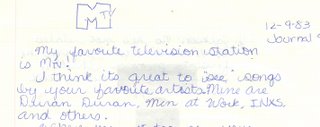 MTV
12-9-83
Journal
My favorite television station
is MTV!
I think its great to "see" songs
by your favorite artists. Mine are
Duran Duran, Men at Work, INXS,
and others.